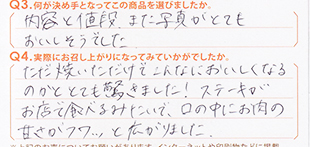 Q3.何が決め手となってこの商品を選びましたか。
内容と値段、また写真がとても
おいしそうでした
Q4.実際にお召し上がりになってみていかがでしたか。
ただ焼いただけでこんなにおいしくなる
のかととても驚きました!ステーキが
お店で食べるみたいで、口の中にお肉の
甘さがフワッ、と広がりました。